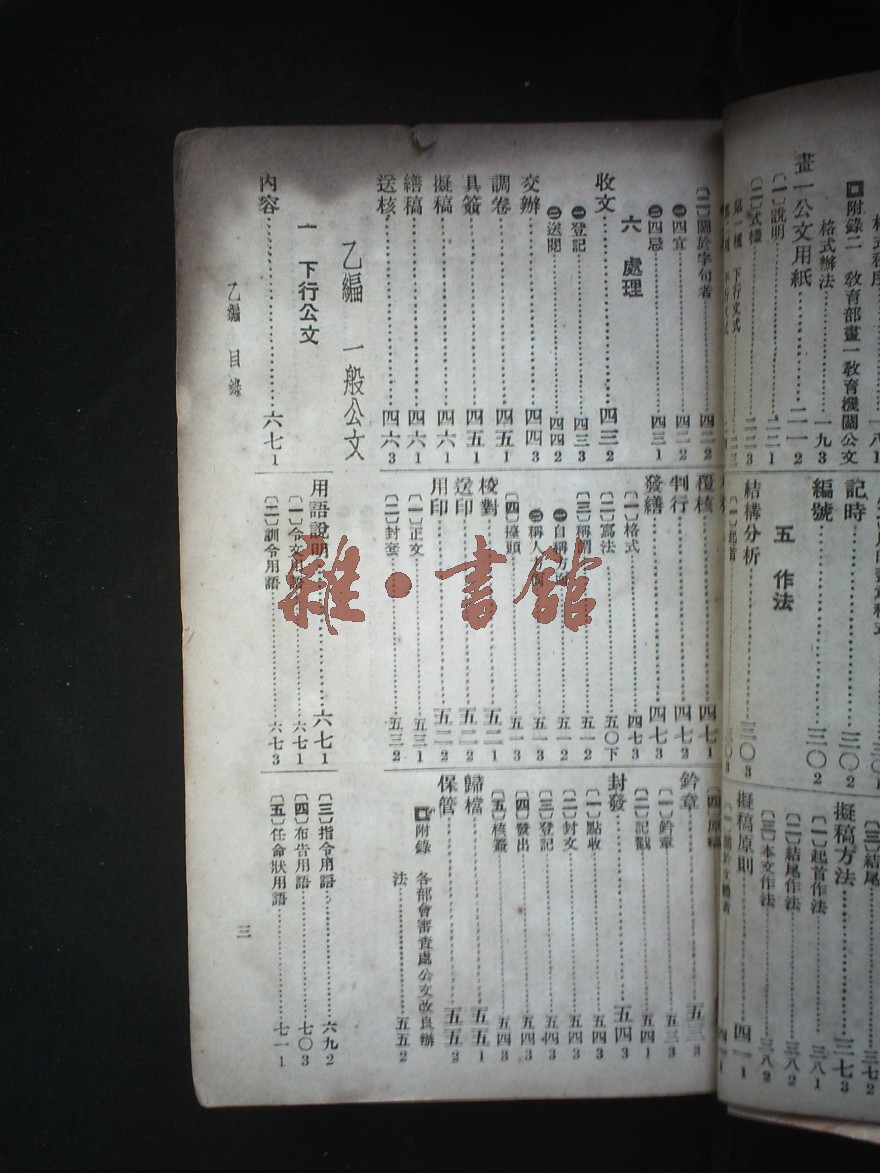 格式辦法……一九3
▣附錄二 教育部畫一教育機關公文
畫一公文用紙……二一2
〔一〕說明……二二1
〔二〕式樣……二二3
第一種 下行文式
記時……三〇2
編號……三〇2
五 作法
結構分析……三〇3
〔一〕起首
〔三〕結尾……三七2
擬稿方法……三七3
〔一〕起首作法……三八1
〔二〕結尾作法……三八2
〔三〕本文作法……三八2
擬稿原則……四一1
〔二〕關於字句者……四二2
㊀四宜……四二2
㊁四忌……四三1
六 處理
收文……四三2
㊀登記……四三3
㊁送閱……四四2
交辦……四四3
調卷……四五1
具簽……四五1
擬稿……四六1
繕稿……四六1
送核……四六3
覆核……四七1
判行……四七2
發繕……四七3
〔一〕格式……四七3
〔二〕寫法……五〇下
〔三〕稱謂……五一2
㊀自稱方面……五一2
㊁稱人方面……五一3
〔四〕擡頭……五一3
校對……五二1
送印……五二2
用印……五二2
〔一〕正文……五三1
〔二〕封套……五三2
鈐章……五三3
〔一〕鈐章……五三3
〔二〕記戳……五四1
封發……五四3
〔一〕點收……五四3
〔二〕封文……五四3
〔三〕登記……五四3
〔四〕發出……五四3
〔五〕核簽……五四3
歸檔……五五1
保管……五五2
▣附錄 各部會審查處公文改良辦
法……五五2
乙編 一般公文
一 下行公文
內容……六七1
用語說明……六七1
〔一〕令文用語……六七1
〔二〕訓令用語……六七3
〔三〕指令用語……六九2
〔四〕布告用語……七〇3
〔五〕任命狀用語……七一1
乙編 目錄
三
雜·書館